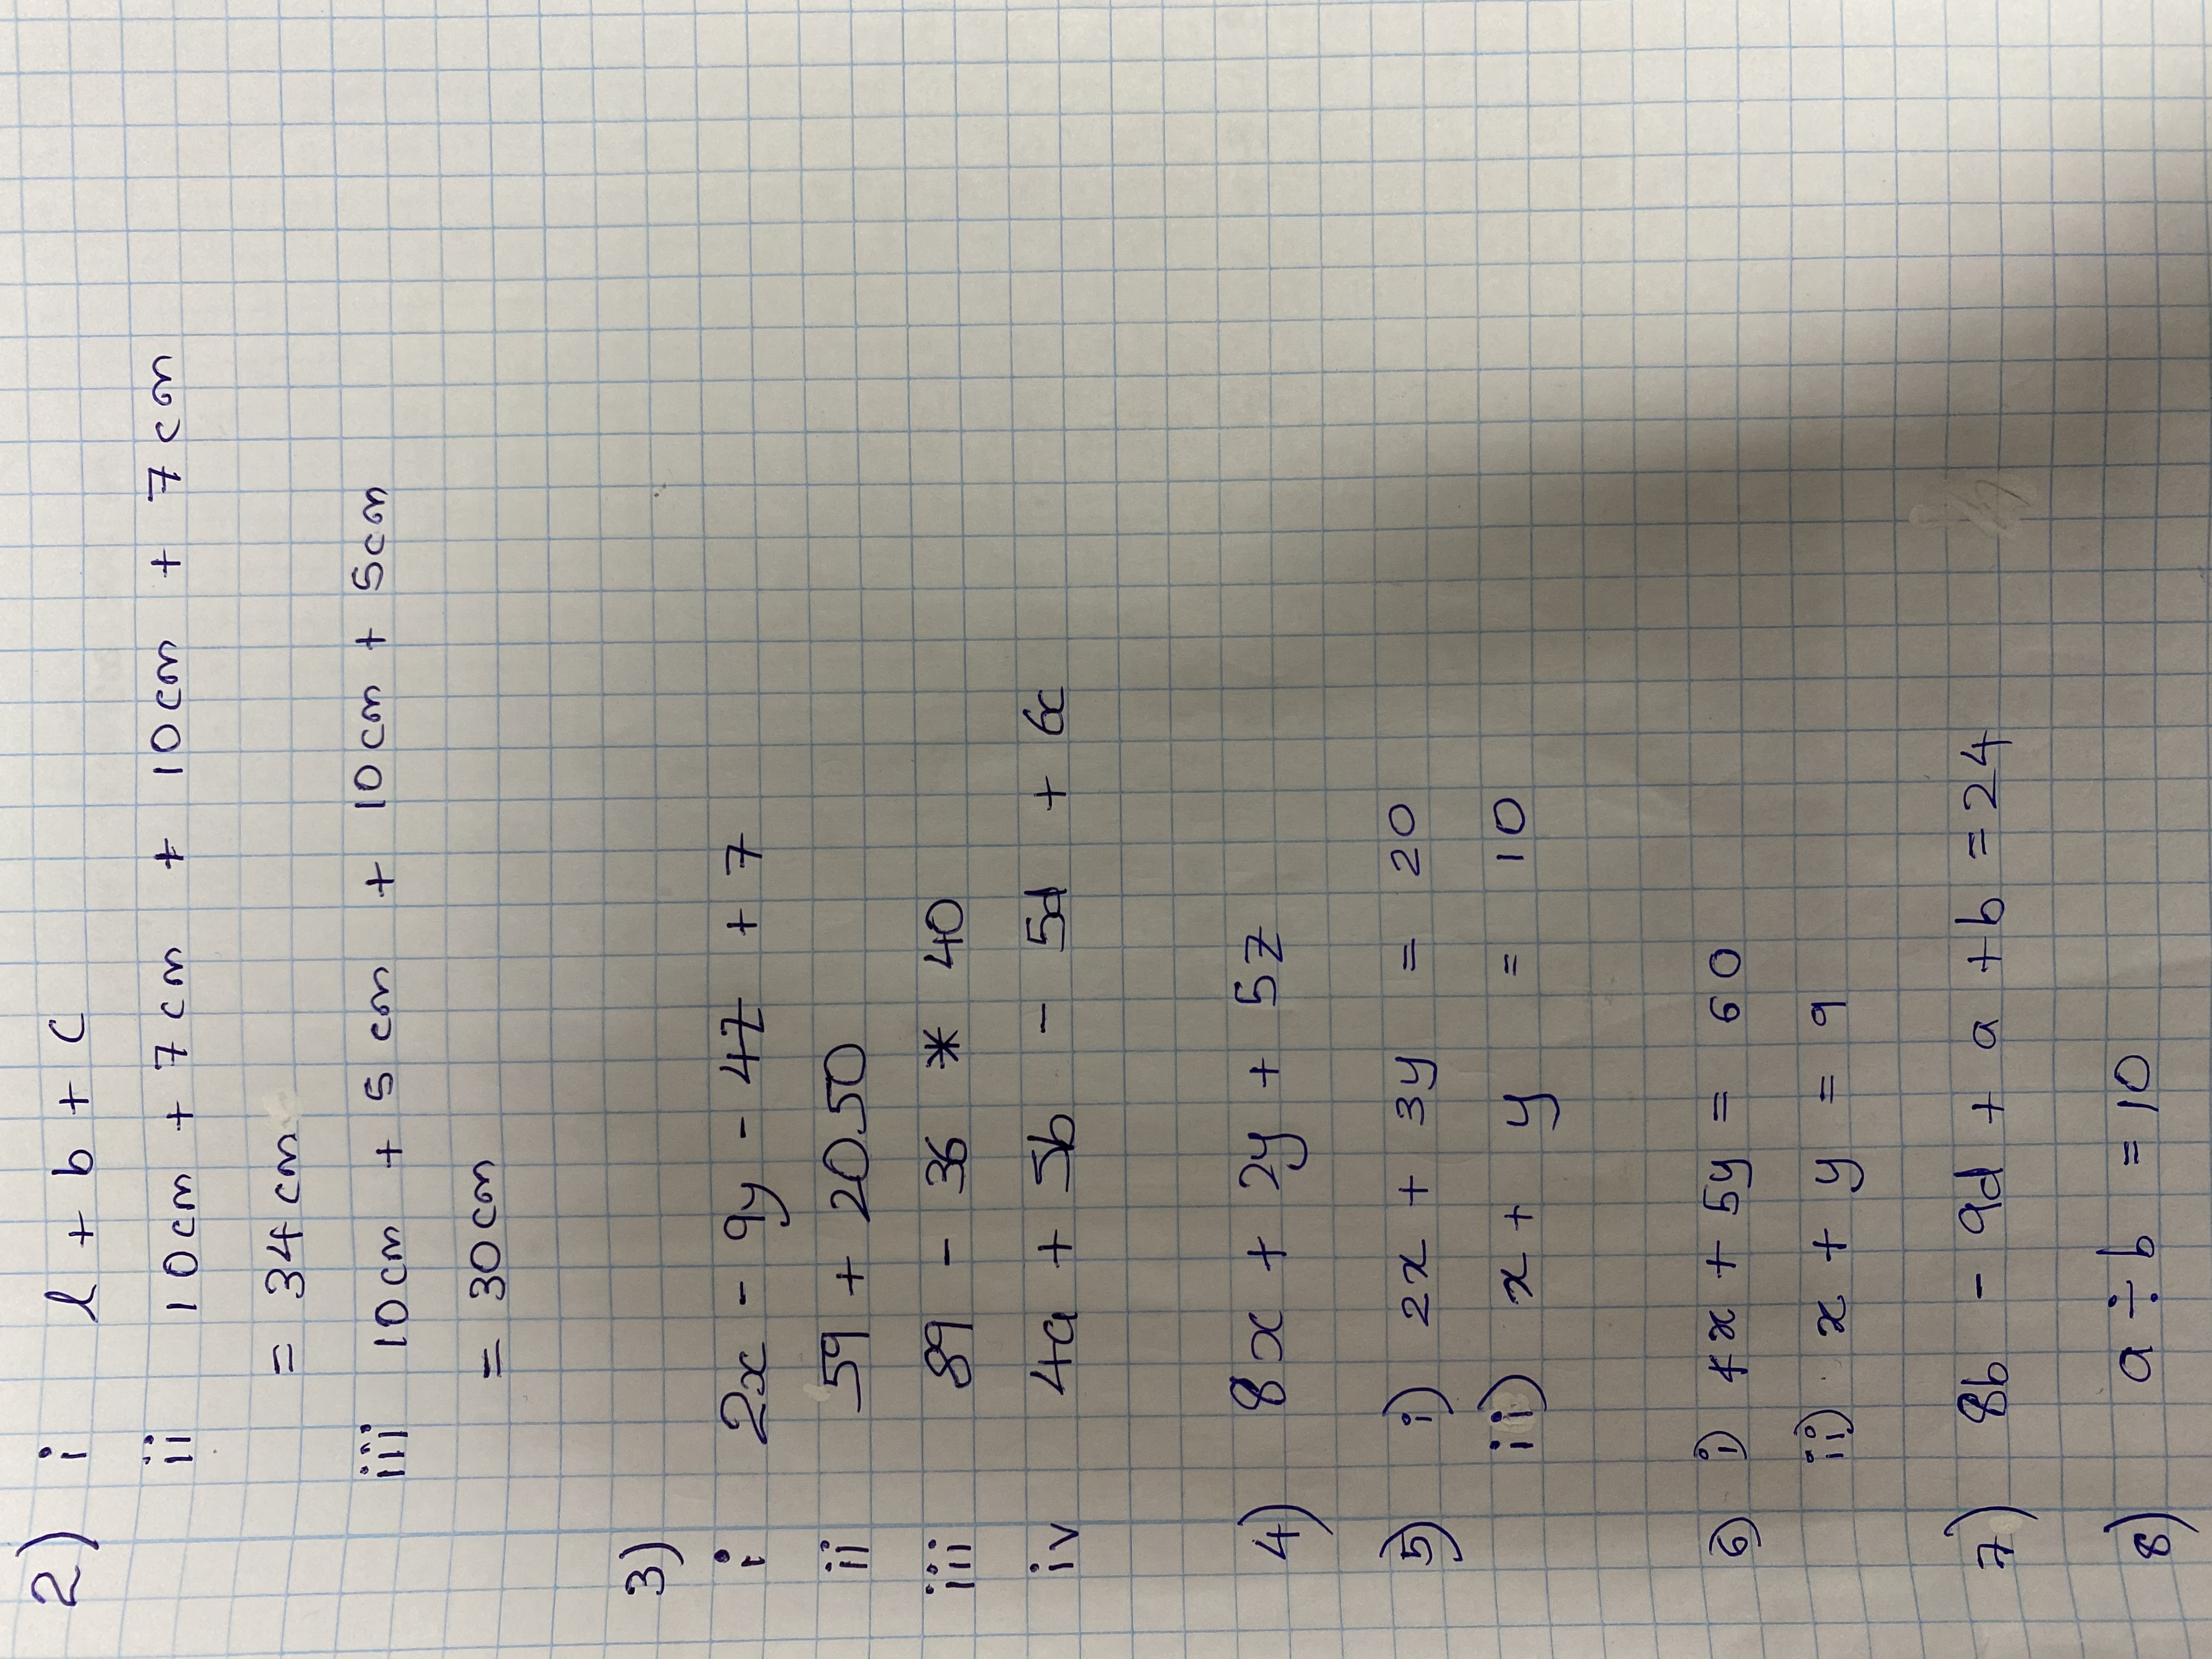 2) i l + b + c
ii 10cm + 7cm + 10cm + 7cm
= 34cm
iii 10cm + 5cm + 10cm + 5cm
= 30cm
3)
i 2x - 9y - 4z + 7
ii 59 + 20.50
iii 89 - 36 * 40
iv 4a + 5b - 5d + 6c
4) 8x + 2y + 5z
5) i) 2x + 3y = 20
ii) x + y = 10
6) i) 4x + 5y = 60
ii) x + y = 9
7) 8b - 9d + a + b = 24
8) a ÷ b = 10